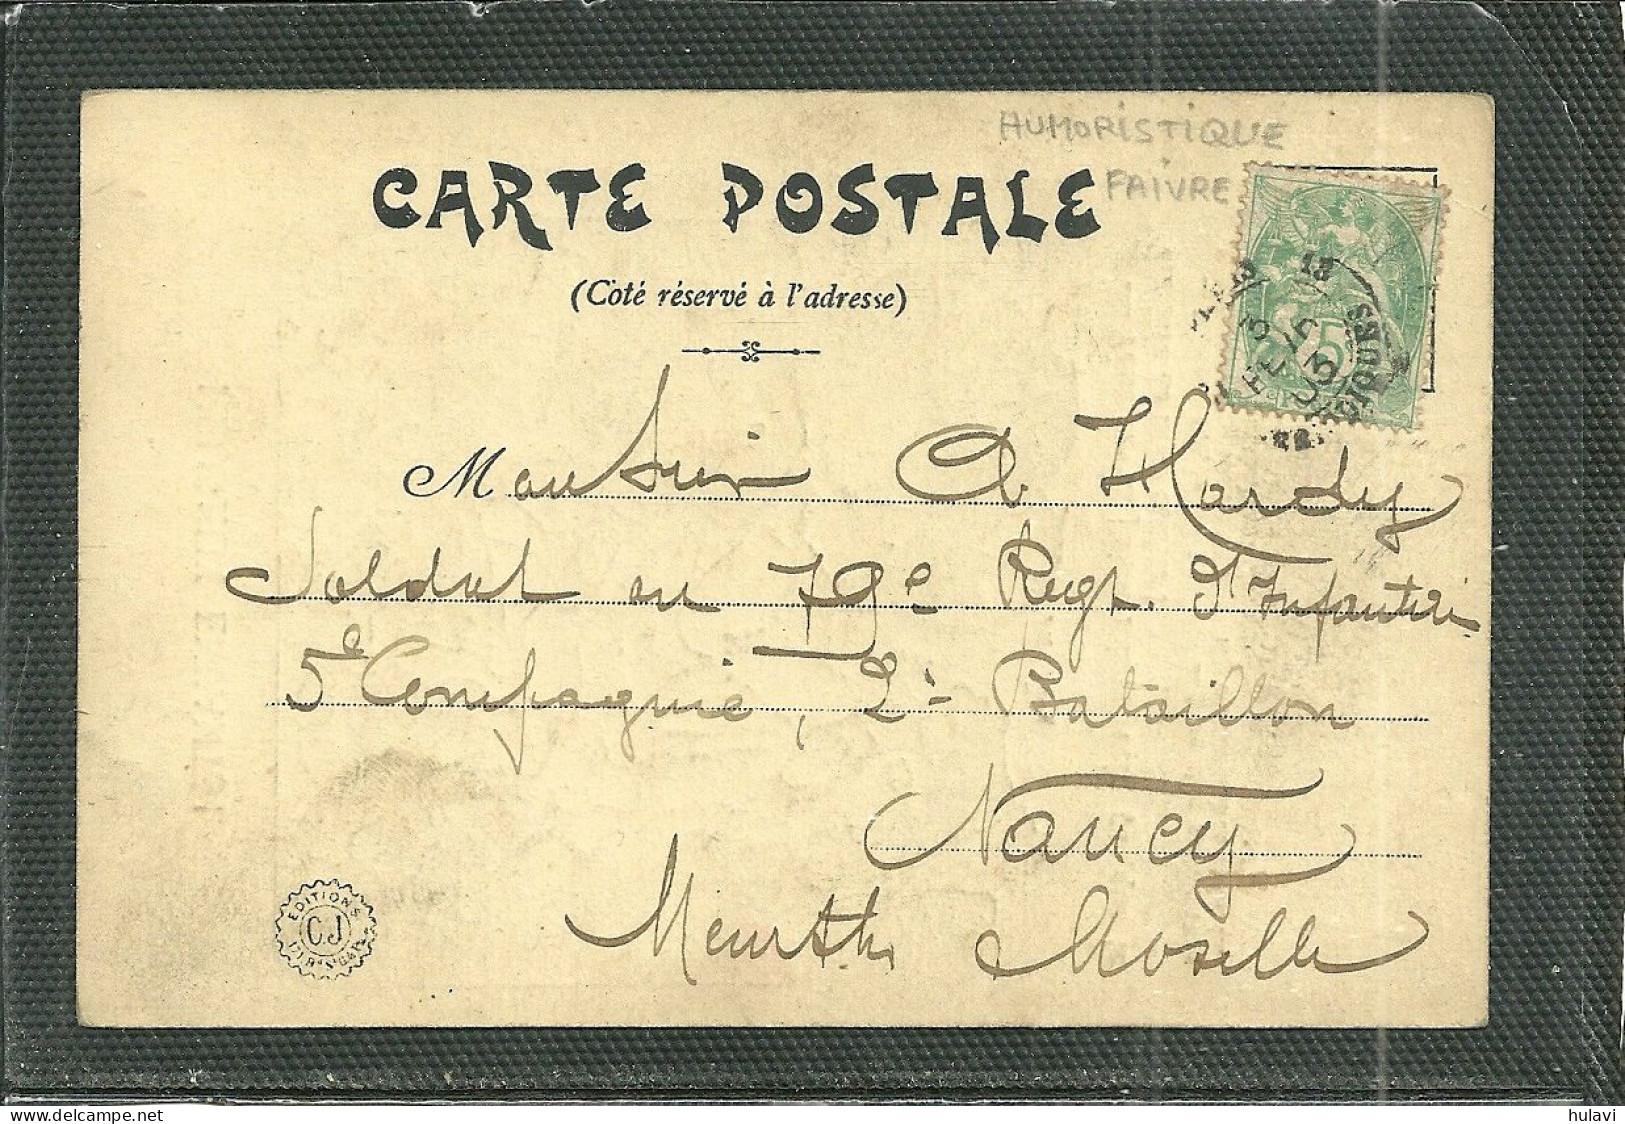 HUMORISTIQUE
FAIVRE
CARTE POSTALE
(Côté réservé à l'adresse)
5
13
3
03
PERIODIQUES
Monsieur Ch Hardy
Soldat au 79e Regt. d'Infanterie
5e Compagnie, 2e Bataillon
Nancy
Meurthe Moselle
EDITIONS
C.J
delcampe.net
hulavi